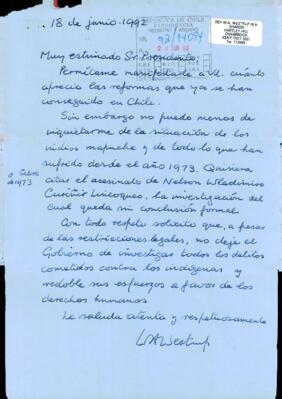 18 de junio 1992
REPUBLICA DE CHILE
PRESIDENCIA
REGISTRO Y ARCHIVO
92/14094
24 JUN 92
REV W.A. WESTRUP M.A.
SHARON
HARTLEY HILL
CRANBROOK
KENT
Muy estimado Sr. Presidente
Permítame manifestarle a Vd. cuánto
aprecio las reformas que ya se han
conseguido en Chile.
Sin embargo no puedo menos de
inquietarme de la situación de los
indios mapuche y de todo lo que han
sufrido desde el año 1973. Quisiera
citar el asesinato de Nelson Wladimiro
Curiñir Lincoqueo, la investigación del
de 1973
cual queda sin conclusión formal.
Con todo respeto solicito que, a pesar
de las restricciones legales, no deje el
Gobierno de investigar todos los delitos
cometidos contra los indígenas y
redoble sus esfuerzos a favor de los
derechos humanos.
Le saluda atenta y respetuosamente
WAWestrup